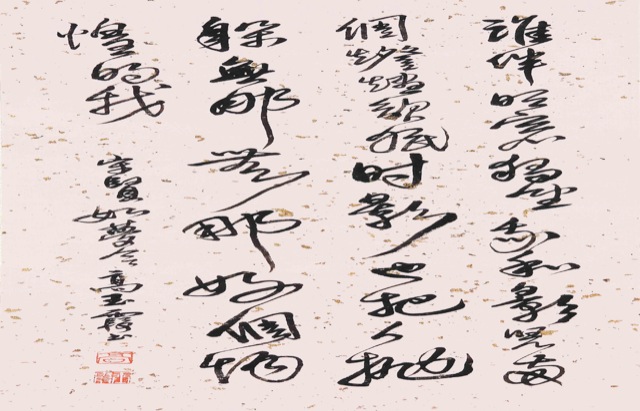 誰伴明窓獨坐我和影兒兩
個燈燼欲眠时影也把人抛
躲無那無那好個恓
惶的我
宋賢如夢令高玉书